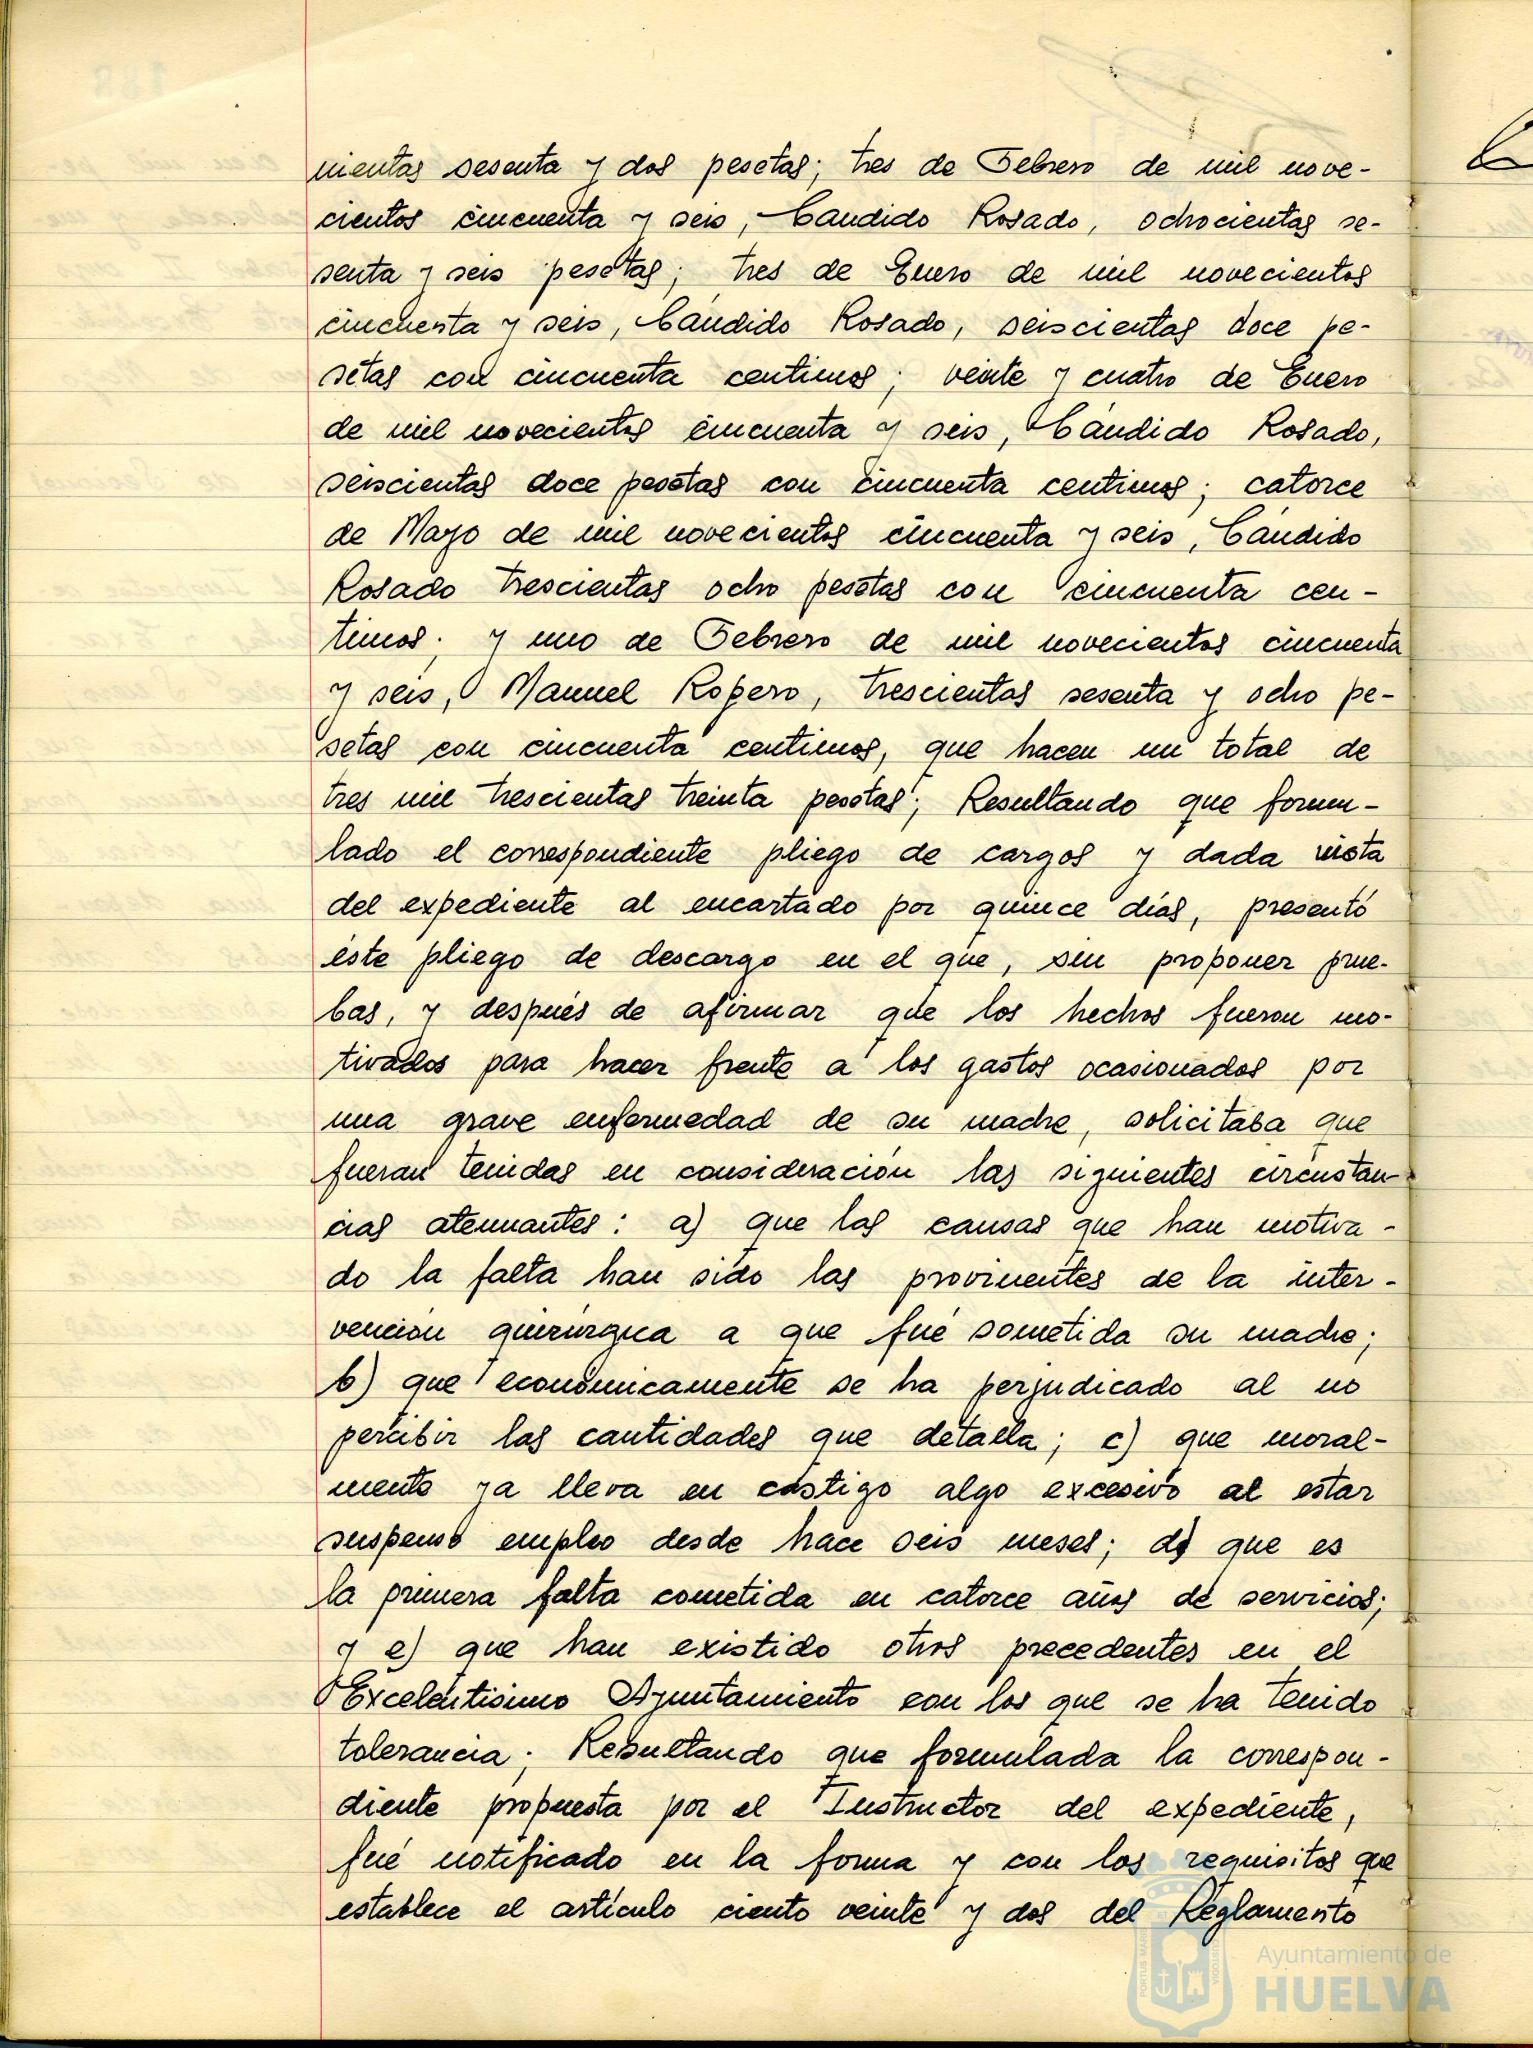 nientas sesenta y dos pesetas; tres de Febrero de mil nove-
cientos cincuenta y seis, Cándido Rosado, ochocientas se-
senta y seis pesetas; tres de Enero de mil novecientos
cincuenta y seis, Cándido Rosado, seiscientas doce pe-
setas con cincuenta centimos; veinte y cuatro de Enero
de mil novecientos cincuenta y seis, Cándido Rosado,
seiscientas doce pesetas con cincuenta centimos; catorce
de Mayo de mil novecientos cincuenta y seis, Cándido
Rosado trescientas ocho pesetas con cincuenta cen-
timos; y uno de Febrero de mil novecientos cincuenta
y seis, Manuel Ropero, trescientas sesenta y ocho pe-
setas con cincuenta centimos, que hacen un total de
tres mil trescientas treinta pesetas; Resultando que formu-
lado el correspondiente pliego de cargos y dada vista
del expediente al encartado por quince días, presentó
éste pliego de descargo en el que, sin proponer prue-
bas, y después de afirmar que los hechos fueron mo-
tivados para hacer frente a los gastos ocasionados por
una grave enfermedad de su madre, solicitaba que
fueran tenidas en consideración las siguientes circunstan-
cias atenuantes: a) que las causas que han motiva-
do la falta han sido las provinentes de la inter-
vención quirúrgica a que fué sometida su madre;
b) que económicamente se ha perjudicado al no
percibir las cantidades que detalla; c) que moral-
mente ya lleva en castigo algo excesivo al estar
suspenso empleo desde hace seis meses; d) que es
la primera falta cometida en catorce años de servicios;
y e) que han existido otros precedentes en el
Excelentísimo Ayuntamiento con los que se ha tenido
tolerancia; Resultando que formulada la correspon-
diente propuesta por el Instructor del expediente,
fué notificado en la forma y con los requisitos que
establece el artículo ciento veinte y dos del Reglamento
Ayuntamiento de
HUELVA